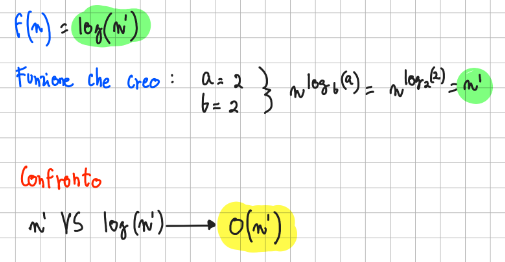 f(n) = log(n¹)
Funzione che creo : a = 2
b = 2 } n^log_b(a) = n^log_2(2) = n¹
Confronto
n¹ VS log(n¹) → O(n¹)